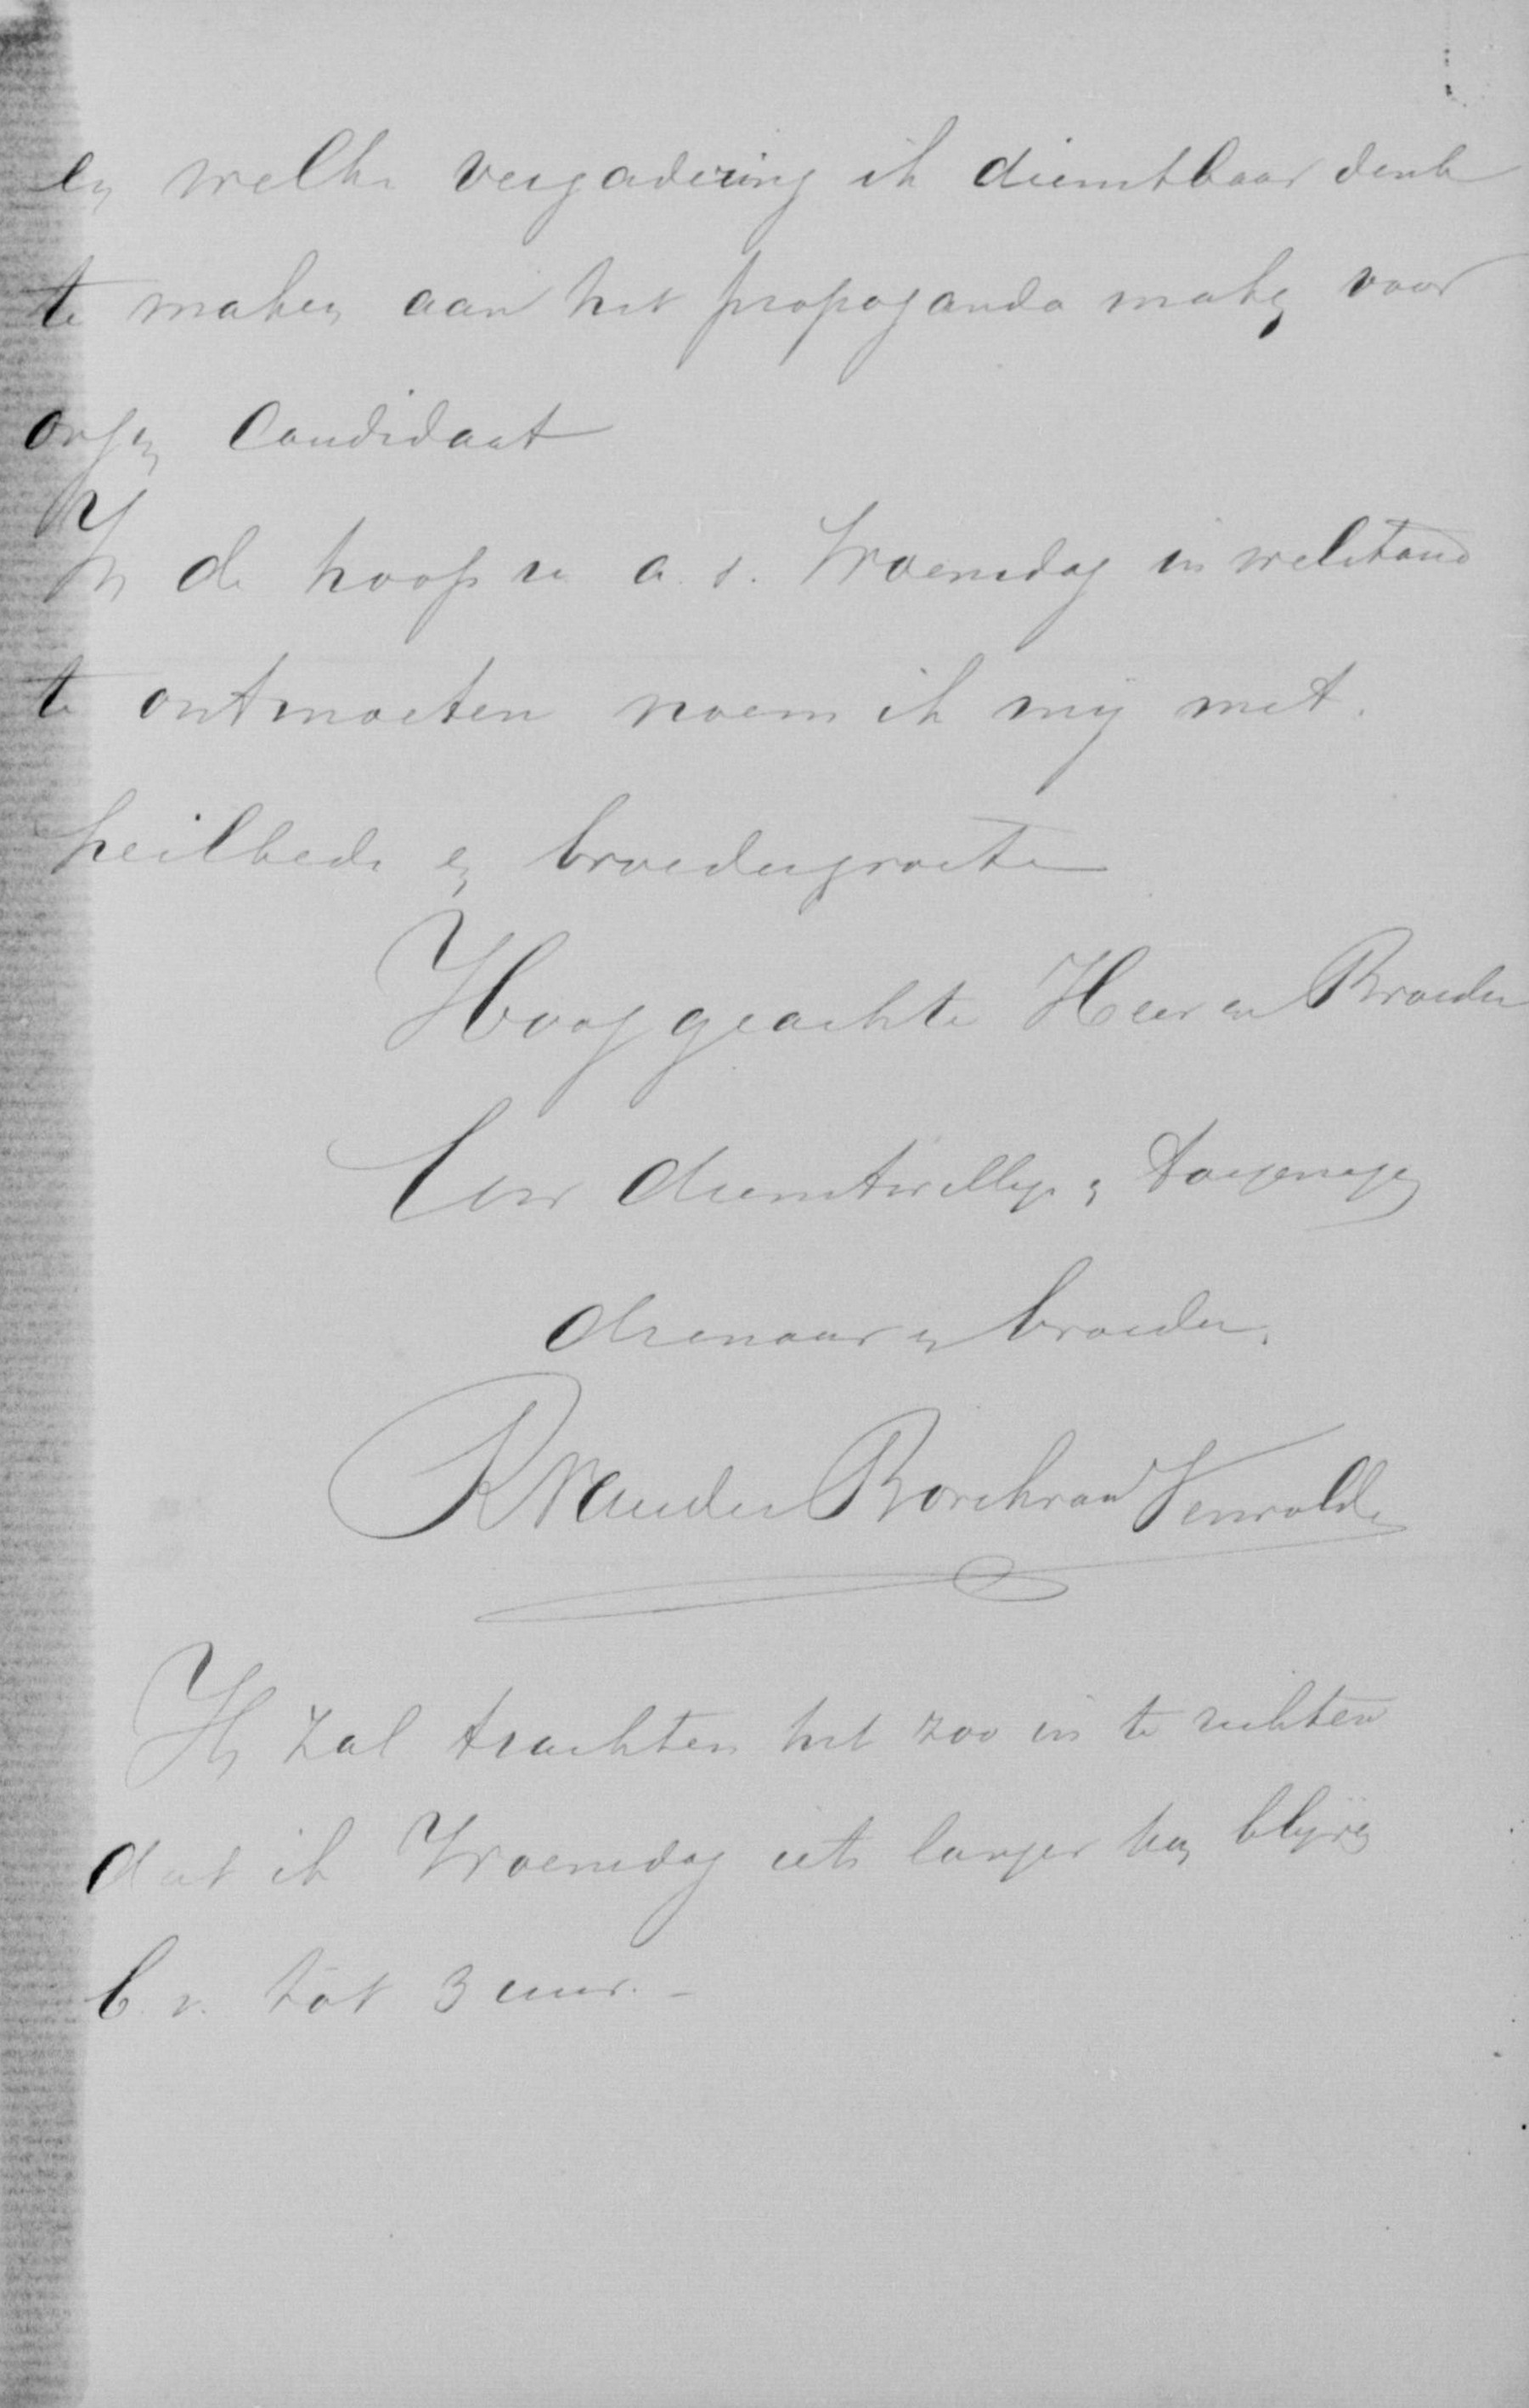 en welke vergadering ik dienstbaar denk
te maken aan het propaganda maken voor
onzen Candidaat
In de hoop u a. s. Woensdag in welstand
te ontmoeten noem ik mij met
heilbede en broedergroete
Hooggeachte Heer en Broeder
Uw dienstwillige en toegenegen
dienaar en broeder.
van den Borch van Verwolde
Ik zal trachten het zoo in te richten
dat ik Woensdag iets langer kan blijven
b. v. tot 3 uur. -